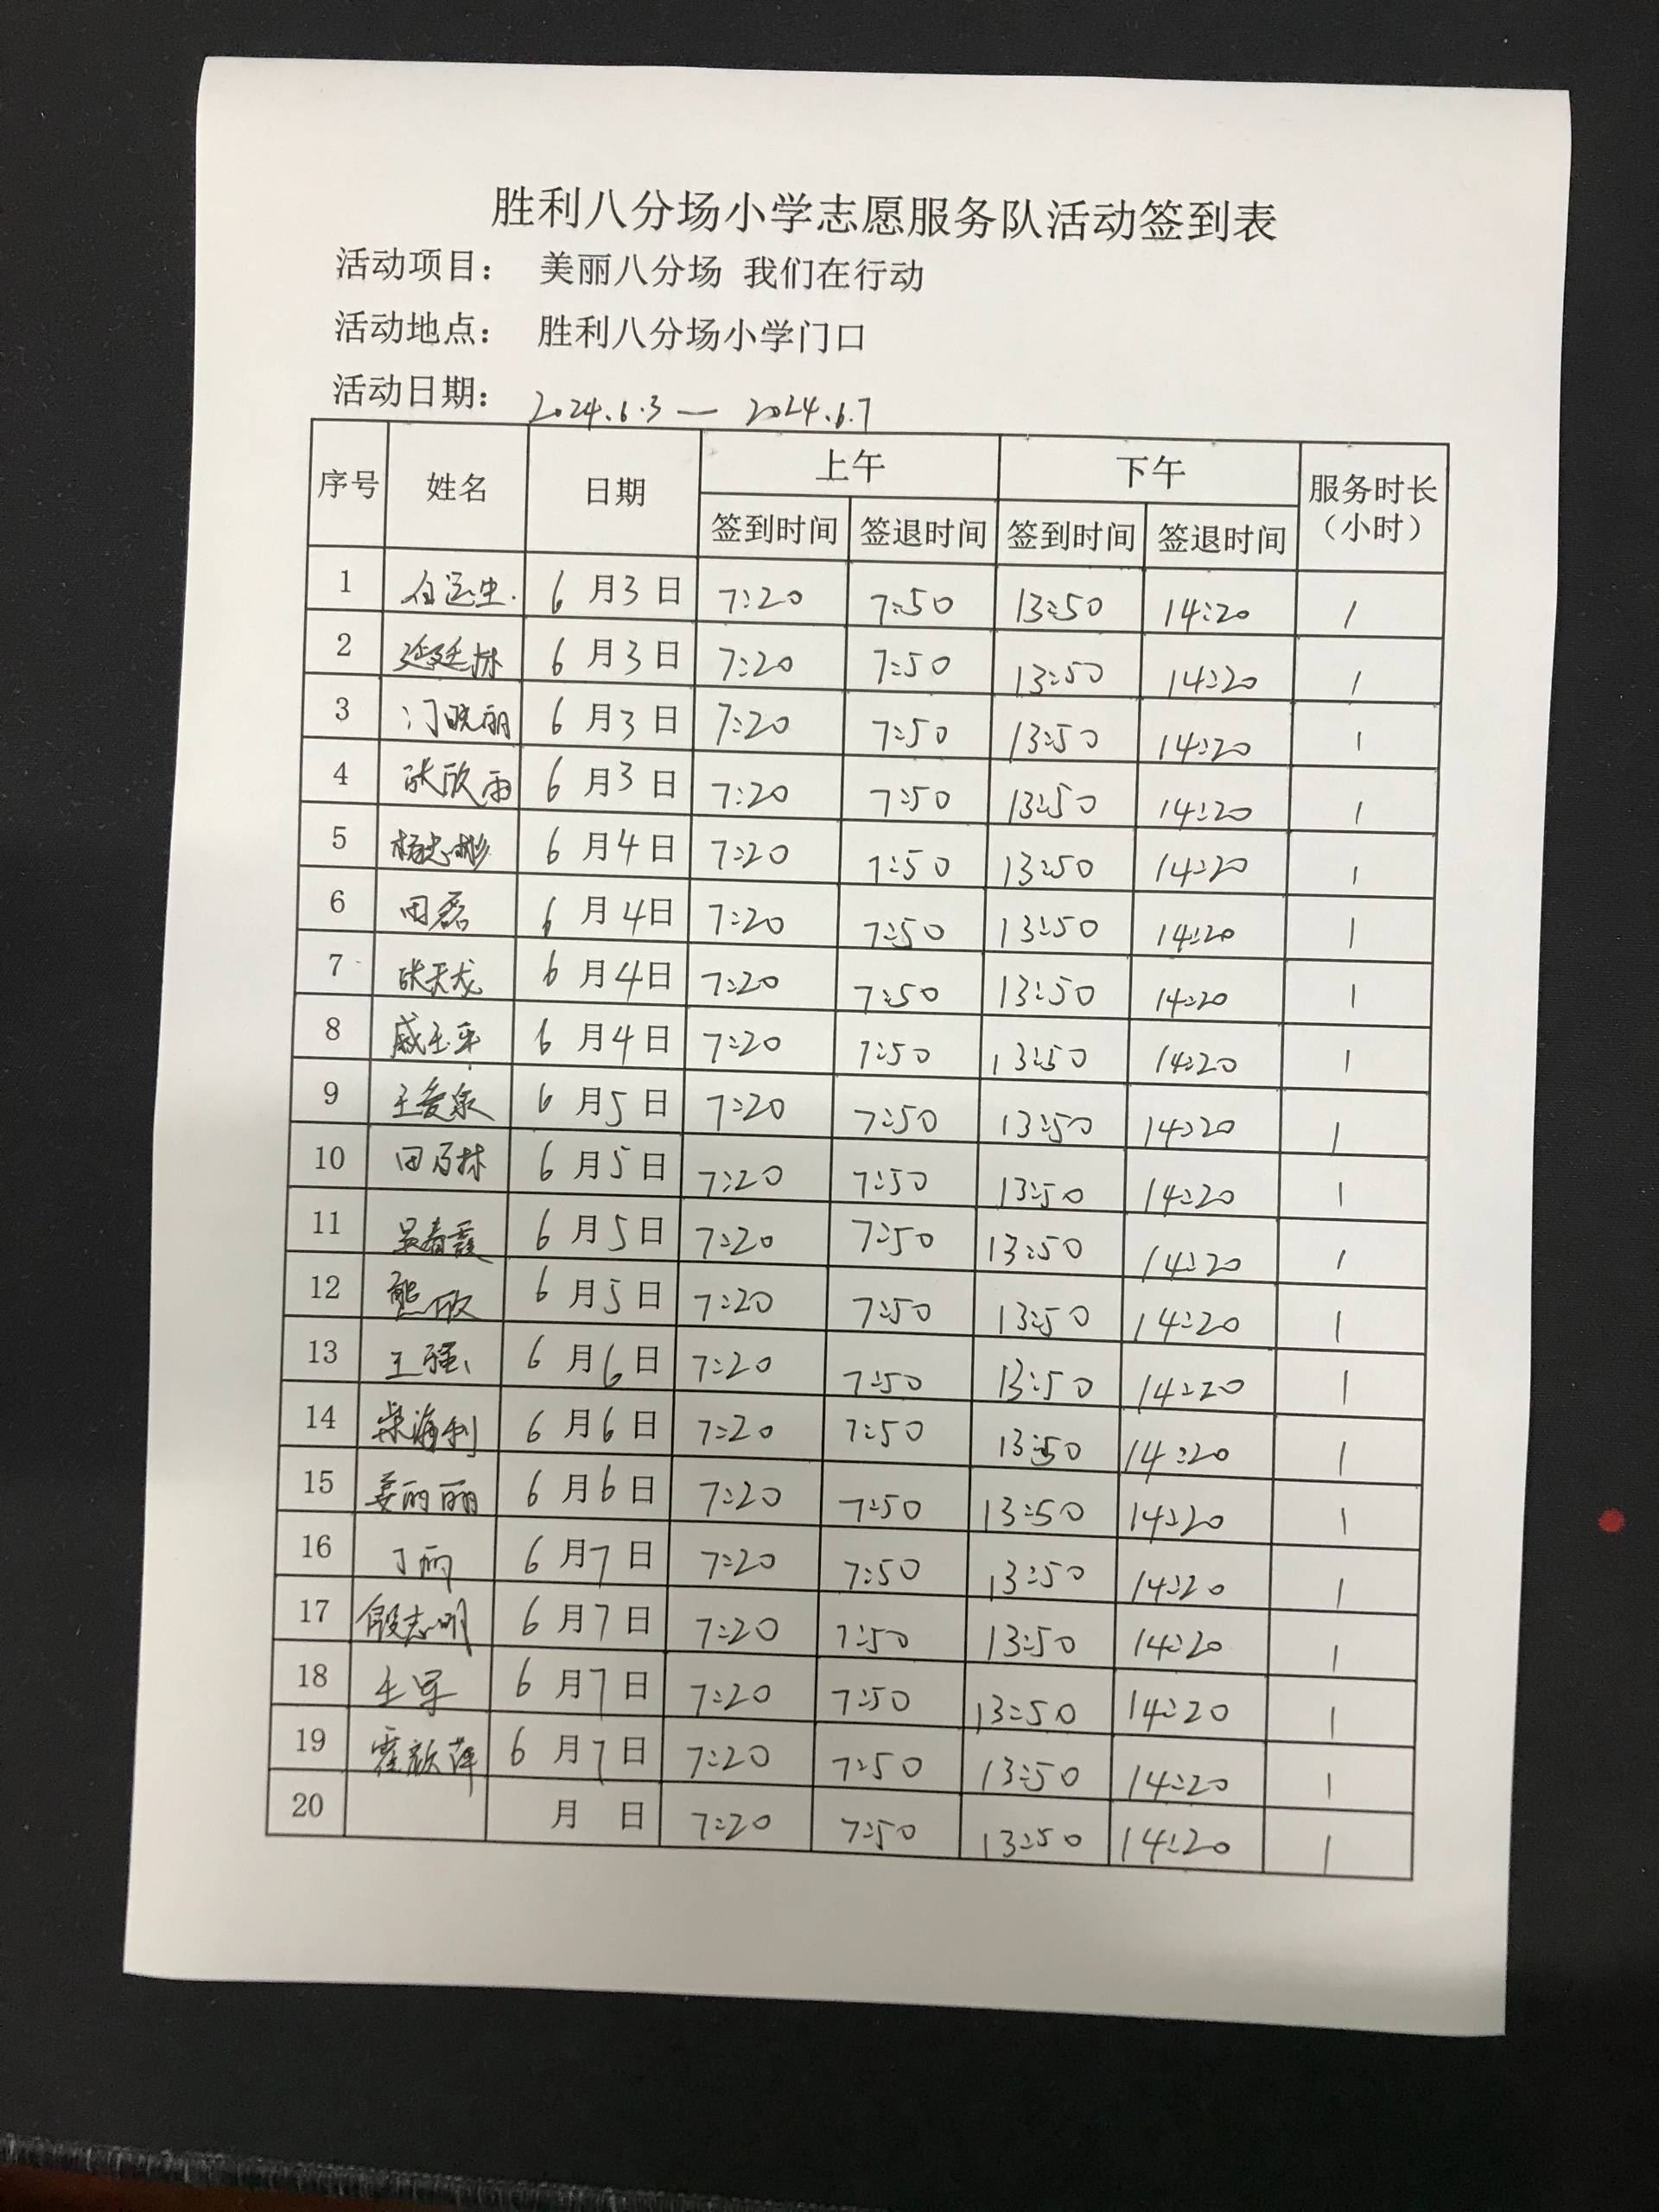 胜利八分场小学志愿服务队活动签到表
活动项目： 美丽八分场 我们在行动
活动地点： 胜利八分场小学门口
活动日期： 2024.6.3 — 2024.6.7
序号 姓名 日期 上午 下午 服务时长（小时）
签到时间 签退时间 签到时间 签退时间
1 6月3日 7:20 7:50 13:50 14:20 1
2 6月3日 7:20 7:50 13:50 14:20 1
3 门晓丽 6月3日 7:20 7:50 13:50 14:20 1
4 张欣雨 6月3日 7:20 7:50 13:50 14:20 1
5 杨忠彬 6月4日 7:20 7:50 13:50 14:20 1
6 田磊 6月4日 7:20 7:50 13:50 14:20 1
7 张天龙 6月4日 7:20 7:50 13:50 14:20 1
8 戚玉平 6月4日 7:20 7:50 13:50 14:20 1
9 王爱泉 6月5日 7:20 7:50 13:50 14:20 1
10 6月5日 7:20 7:50 13:50 14:20 1
11 吴春霞 6月5日 7:20 7:50 13:50 14:20 1
12 6月5日 7:20 7:50 13:50 14:20 1
13 王强 6月6日 7:20 7:50 13:50 14:20 1
14 柴海利 6月6日 7:20 7:50 13:50 14:20 1
15 姜丽丽 6月6日 7:20 7:50 13:50 14:20 1
16 丁丽 6月7日 7:20 7:50 13:50 14:20 1
17 殷志明 6月7日 7:20 7:50 13:50 14:20 1
18 王军 6月7日 7:20 7:50 13:50 14:20 1
19 霍颜萍 6月7日 7:20 7:50 13:50 14:20 1
20 月 日 7:20 7:50 13:50 14:20 1